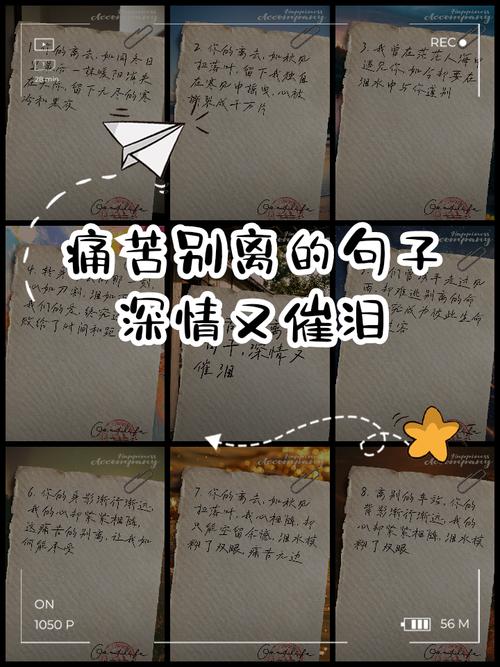 Happiness
Accompany
Happiness
Accompany
REC
28 min
1. 你的离去,如同冬日
后一抹暖阳消失
在天际,留下无尽的寒
冷和寂寞
2. 你的离去,如秋风
扫落叶,留下我独自
在寒风中摇曳,心被
撕裂成千万片
3. 我曾在茫茫人海中
遇见你,如今却要在
泪水中与你道别
痛苦别离的句子
深情又催泪
4. 转身
心如刀割,泪如
我们的爱,终究
败给了时间和距
句子,深情又
催泪
们曾携手走过风
雨,却难逃别离的命
Happiness
Accompany
Happiness
Accompany
Happiness
Accompany
6. 你的身影渐行渐远,
我的心却紧紧相随,
这痛苦的别离,让我如
何能承受
7. 你的离去,如秋风
扫落叶,我心相随,却
只能空留余恨,泪水模
糊了双眼,痛苦无边
8. 离别的车站,你的
背影渐行渐远,我的
心却紧紧相随,泪水模
糊了双眼
ON
1050 P
56 M